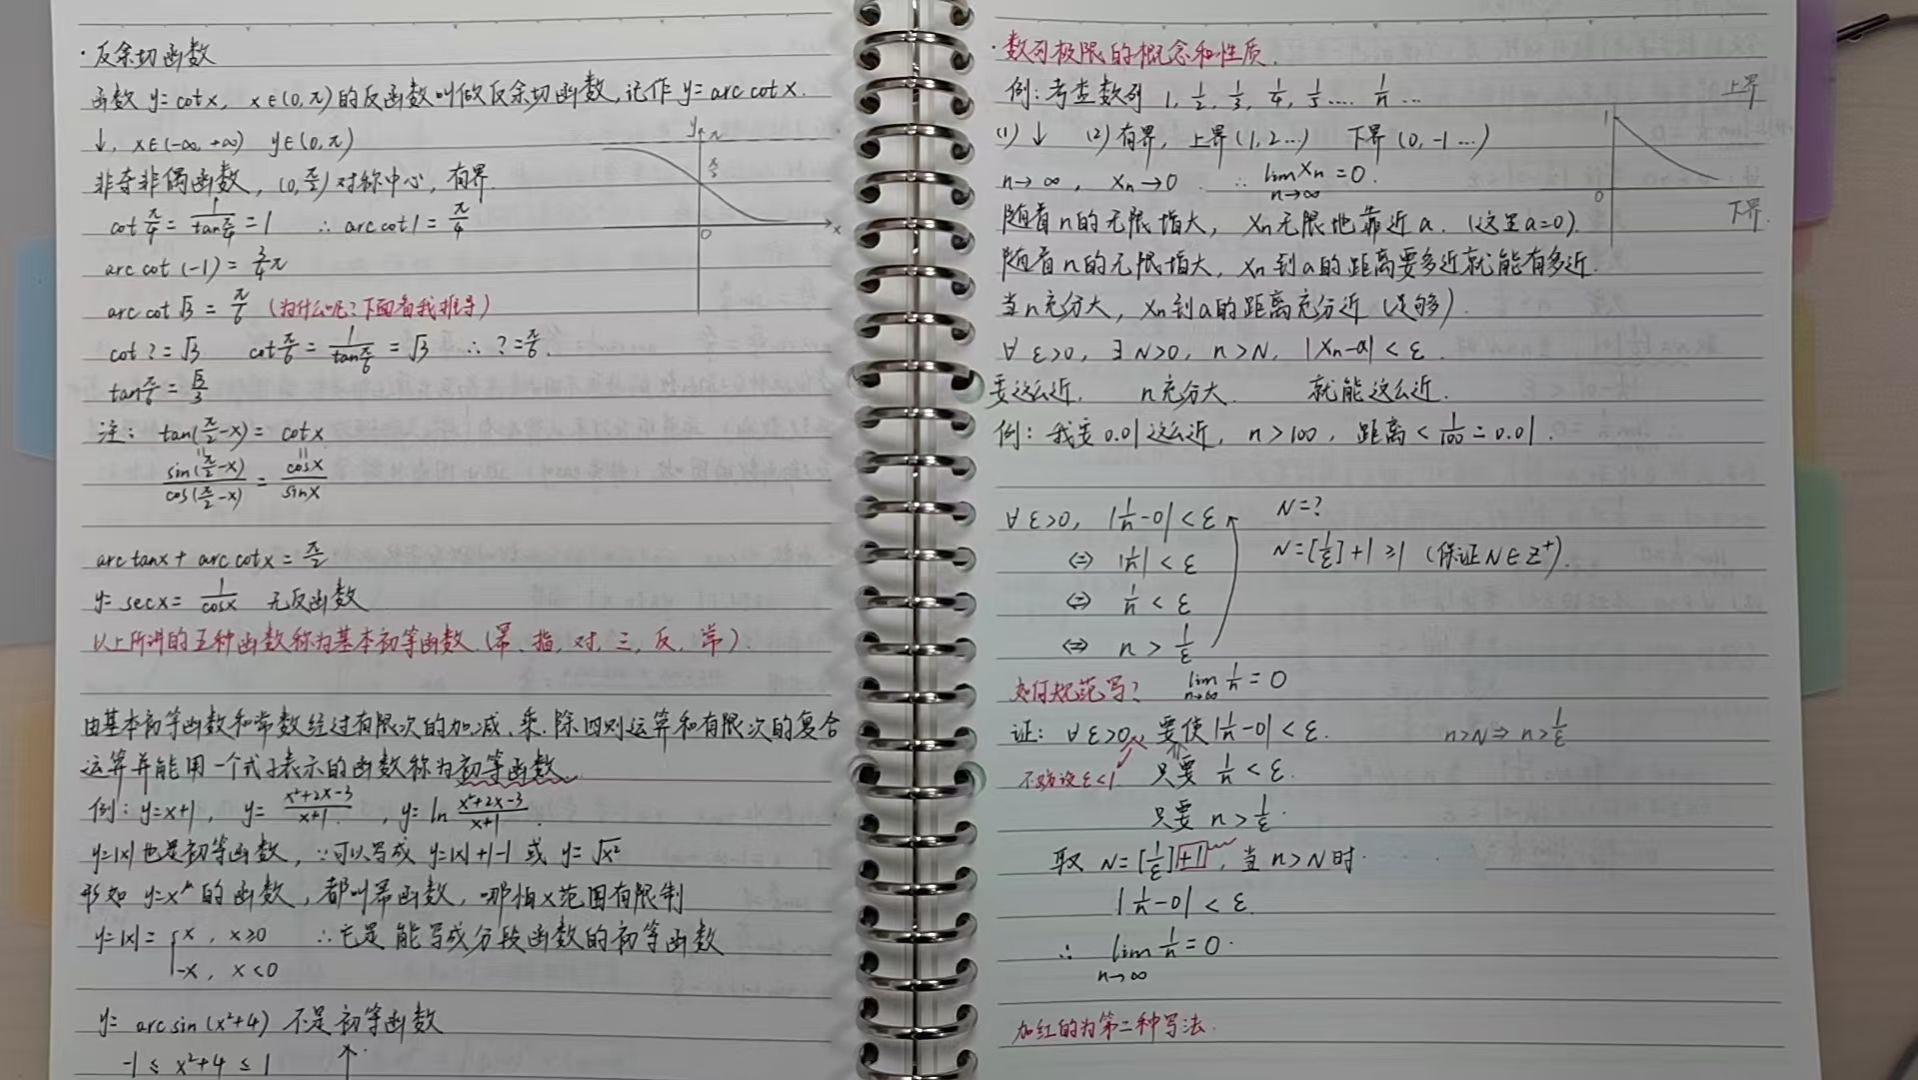 ·反余切函数
函数 y=cotx, x∈(0,π)的反函数叫做反余切函数,记作 y=arc cotx.
↓, x∈(-∞,+∞) y∈(0,π)
非奇非偶函数, (0,π/2)对称中心, 有界.
cot π/4 = 1/tan π/4 = 1 ∴ arc cot1 = π/4
arc cot(-1) = 3/4 π
arc cot √3 = π/6 (为什么呢?下面看我推导)
cot ? = √3 cot π/6 = 1/tan π/6 = √3 ∴ ? = π/6.
tan π/6 = √3/3
注: tan(π/2-x) = cotx
sin(π/2-x)/cos(π/2-x) = cosx/sinx
y π
π/2
0 x
arc tanx + arc cotx = π/2
y= secx = 1/cosx 无反函数
以上所讲的五种函数称为基本初等函数 (幂、指、对、三、反、常).
由基本初等函数和常数经过有限次的加、减、乘、除四则运算和有限次的复合
运算并能用一个式子表示的函数称为初等函数
例: y=x+1, y= (x²+2x-3)/(x+1), y= ln (x²+2x-3)/(x+1)
y=|x|也是初等函数, ∵可以写成 y=|x|+1-1 或 y=√x²
形如 y=x^μ 的函数, 都叫幂函数, 哪怕x范围有限制
y=|x|= { x, x≥0 ∴它是能写成分段函数的初等函数
-x, x<0
y= arc sin(x²+4) 不是初等函数
-1 ≤ x²+4 ≤ 1 ↑
·数列极限的概念和性质.
例:考查数列 1, 1/2, 1/3, 1/4, 1/5 .... 1/n ...
(1) ↓ (2) 有界, 上界(1,2...) 下界(0,-1...)
上界
1
0
下界.
n→∞, Xn→0 ∴ lim n→∞ Xn=0.
随着n的无限增大, Xn无限地靠近a. (这里a=0).
随着n的无限增大, Xn到a的距离要多近就能有多近.
当n充分大, Xn到a的距离充分近 (足够).
∀ε>0, ∃N>0, n>N, |Xn-a|<ε.
要这么近. n充分大. 就能这么近.
例: 我要0.01这么近, n>100, 距离<1/100=0.01.
∀ε>0, |1/n-0|<ε N=?
⇔ |1/n|<ε N=[1/ε]+1≥1 (保证N∈Z⁺).
⇔ 1/n<ε
⇔ n>1/ε
如何规范写? lim n→∞ 1/n=0
证: ∀ε>0, 要使|1/n-0|<ε. n>N⇒n>1/ε
不妨设ε<1 只要 1/n<ε.
只要 n>1/ε.
取 N=[1/ε]+1, 当n>N时.
|1/n-0|<ε.
∴ lim n→∞ 1/n=0.
加红的为第二种写法.